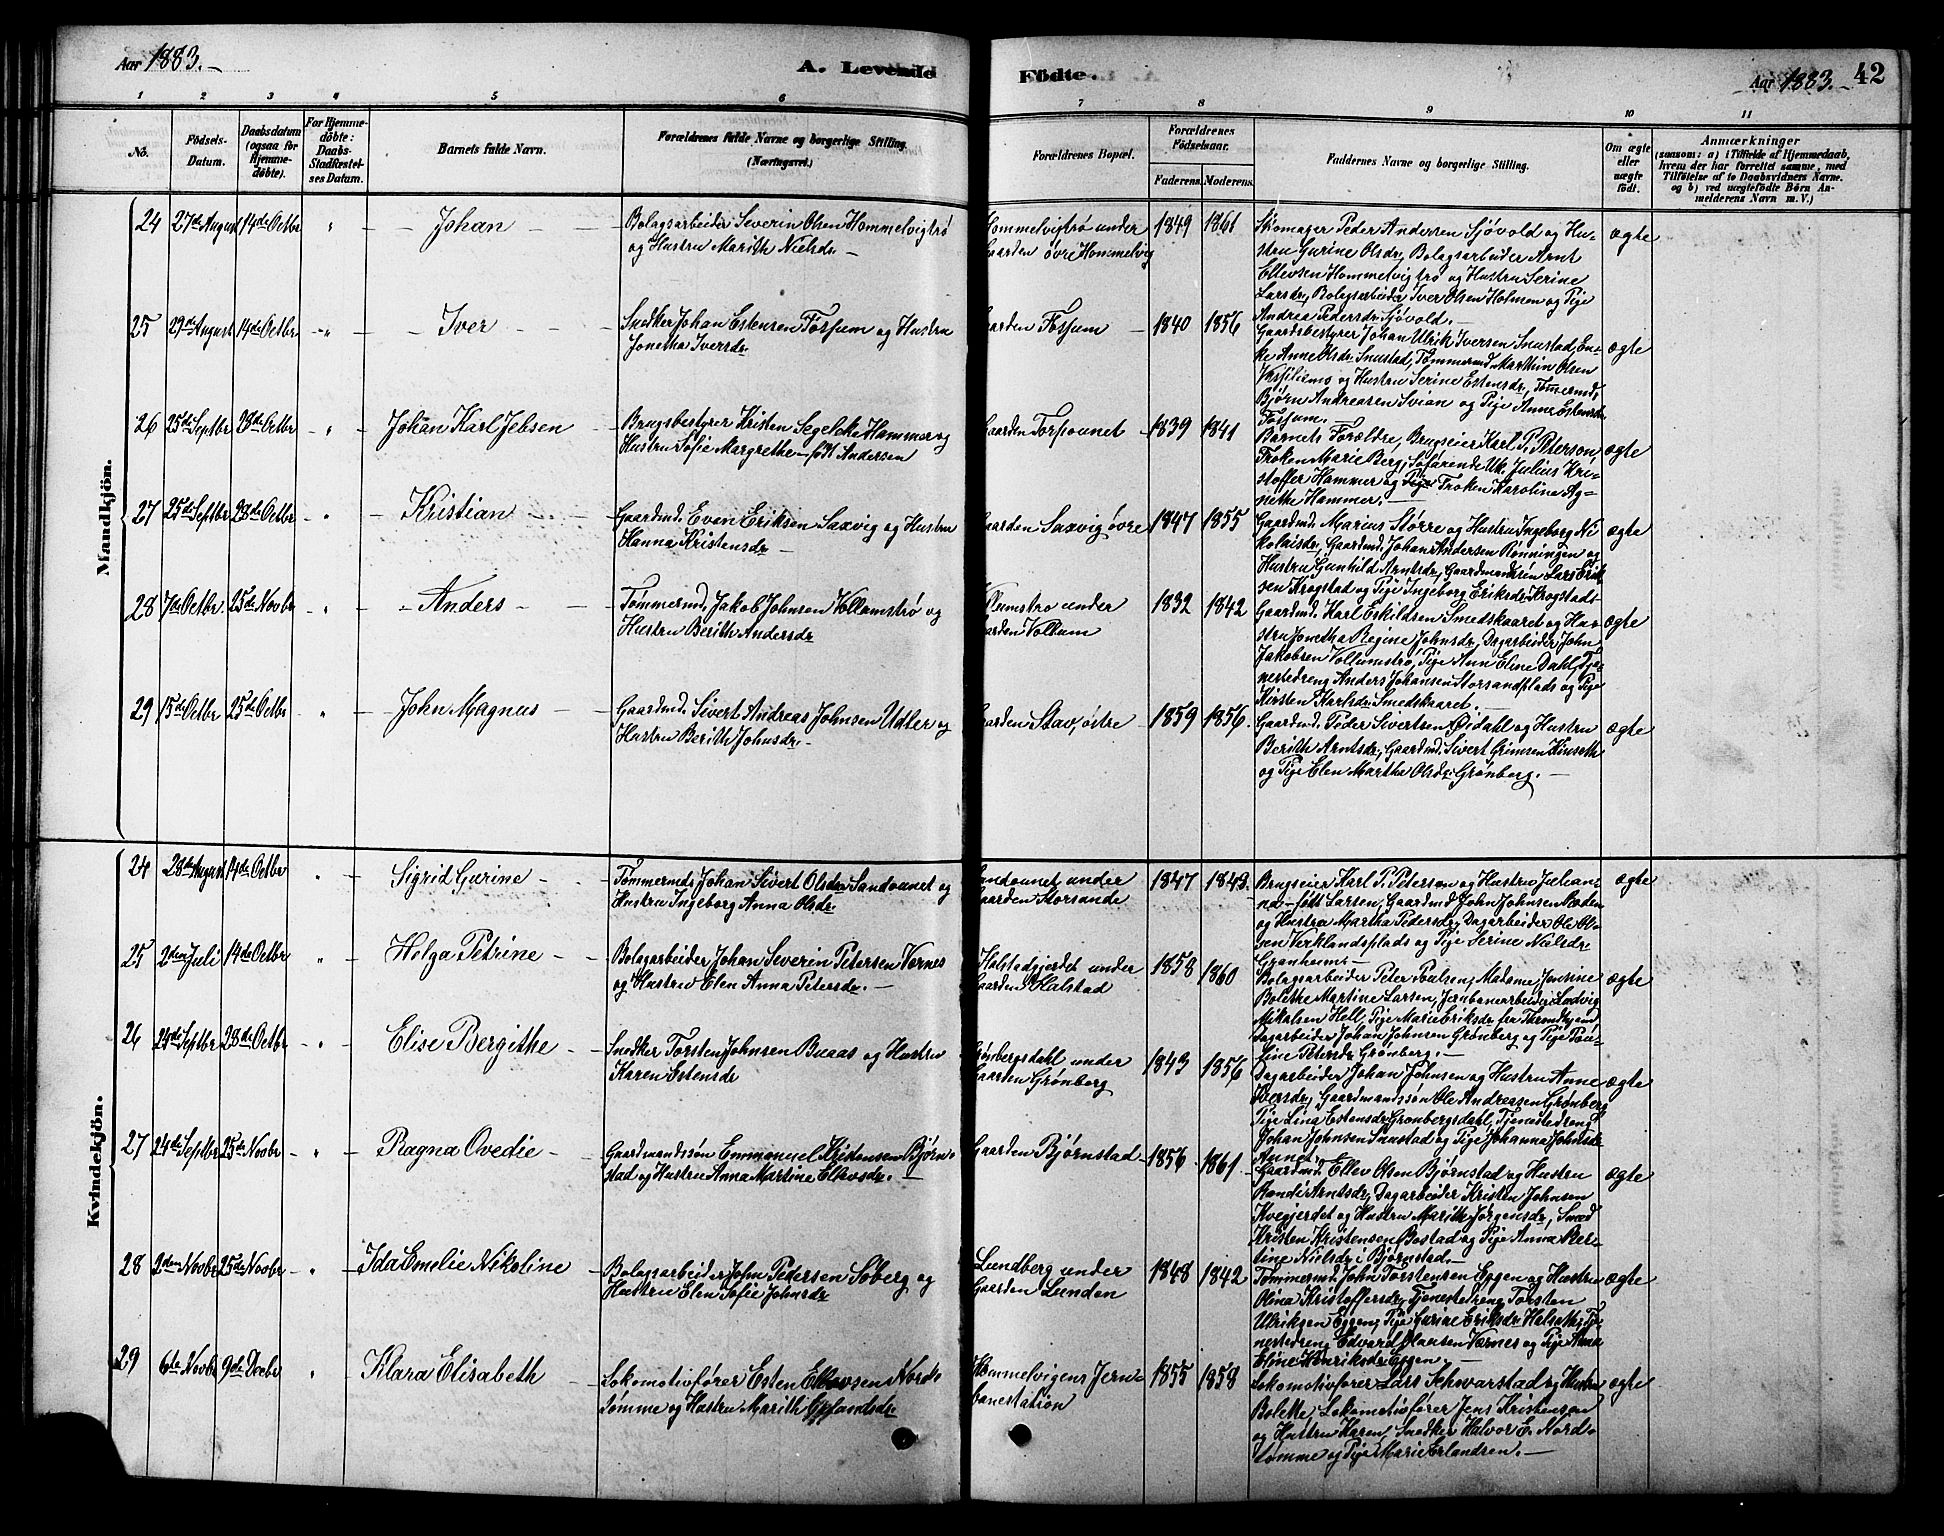 Aar 1883.
A. Levende
Födte.
Aar 1883. 42
1 2 3 4 5 6 7 8 9 10 11
No.
Födsels-
Datum.
Daabsdatum
(ogsaa for
Hjemme-
döbte).
For Hjemme-
döbte:
Daabs-
Stadfæstel-
ses Datum.
Barnets fulde Navn.
Forældrenes fulde Navne og borgerlige Stilling.
(Næringsvei.)
Forældrenes Bopæl.
Forældrenes
Födselsaar.
Faderens. Moderens.
Faddernes Navne og borgerlige Stilling.
Om ægte
eller
uægte
födt.
Anmærkninger
(saasom: a) i Tilfælde af Hjemmedaab,
hvem der har forrettet samme, med
Tilföielse af to Daabsvidners Navne.
og b) ved uægtefödte Börn An-
melderens Navn m. V.)
Mandkjön.
24 27de August 14de Octbr " Johan
Bolagsarbeider Severin Olsen Hommelvigtrø
og Hustru Marith Nielsdr
Hommelvigtrø under
Gaarden øvre Hommelvig
1849 1861
Skomager Peder Andersen Sjøvold og Hu-
stru Gurine Olsdr, Bolagsarbeider Arnt
Ellevsen Hommelvigtrø og Hustru Serine
Larsdr, Bolagsarbeider Iver Olsen Holmen og Pige
Andrea Pedersdr Sjøvold.
ægte
25 29de August 14de Octbr " Iver
Snedker Johan Estensen Fossum og Hustru
Jonetha Iversdr
Gaarden Fossum
1840 1856
Gaardsbestyrer Johan Ulrik Iversen Snustad, En-
ke Anne Olsdr Snustad, Tømmermd Marthin Olsen
og Hustru Serine Estensdr, Tømermd,
Bjørn Andreasen Svian og Pige Anne Estensdr
Fossum.
ægte
26 25de Septbr 28de Octbr " Johan Karl Jebsen
Brugsbestyrer Kristen Segelcke Hammer og
Hustru Sofie Margrethe født Andersen
Gaarden Torpounet
1839 1841
Barnets Forældre, Brugseier Karl P. Peterson,
Frøken Marie Berg, Søfarende Julius Kri-
stoffer Hammer og Pige Frøken Karoline Ag-
nethe Hammer.
ægte
27 25de Septbr 28de Octbr " Kristian
Gaardmd. Even Eriksen Saxvig og Hustru
Hanna Kristensdr
Gaarden Saxvig øvre
1847 1855
Gaardmd. Marius Større og Hustru Ingeborg Ni-
kolaisdr, Gaardmd. Johan Andersen Rønningen og
Hustru Gunhild Arntsdr, Gaardmandssøn Lars Erik-
sen Krogstad og Pige Ingeborg Eriksdr Krogstad
ægte
28 7de Octbr 25de Novbr " Anders
Tømmermd. Jakob Johnsen Vollumstrø og
Hustru Berith Andersdr
Vollumstrø under
Gaarden Vollum
1832 1842
Gaardmd. Karl Eskildsen Smedskaaret og Hu-
stru Jonetha Regine Johnsdr, Dagarbeider John
Jakobsen Vollumstrø, Pige Ann Eline Dahl, Tje-
nestedreng Anders Johansen Storsandplads og Pige
Kirsten Karlsdr Smedskaaret.
ægte
29 15de Octbr 25de Octbr " John Magnus
Gaardmd. Sivert Andreas Johnsen Udler og
Hustru Berith Johnsdr.
Gaarden Stav, østre
1859 1856.
Gaardmd. Peder Sivertsen Øidahl og Hustru
Berith Arntsdr, Gaardmd. Sivert Grimsen Kinseth
og Pige Elen Martha Olsdr Grønberg.
ægte
Kvindekjön.
24 28de August 14de Octbr " Sigrid Gurine
Tømmermd. Johan Sivert Olsen Sandounet og
Hustru Ingeborg Anna Olsdr
Sandounet under
Gaarden Storsande
1847 1843.
Brugseier Karl P. Petersen og Hustru Julian-
na født Larsen, Gaardmd. John Johnsen Næden
og Hustru Martha Pedersdr, Dagarbeider Ole Ol-
sen Verklandsplads og Pige Serine Nielsdr
Granheim.
ægte
25 2den Juli 14de Octbr " Helga Petrine
Bolagarbeider Johan Severin Petersen Værnes
og Hustru Elen Anna Petersdr.
Halstadgjerdet under
Gaarden Halstad
1858 1860
Bolagsarbeider Peter Poulsen, Madame Jensine
Bolethe Martine Larsen, Jernbanearbeider Ludvig
Mikalsen Hell, Pige Marie Eriksdr fra Throndhjem,
Dagarbeider Johan Johnsen Grønberg og Pige Pou-
line Petersdr Grønberg.
ægte
26 24de Septbr 28de Octbr " Elise Bergithe
Snedker Torsten Johnsen Buaas og Hustru
Karen Estensdr
Grønbergsdahl under
Gaarden Grønberg
1843 1856
Dagarbeider Johan Johnsen og Hustru Anne
Iversdr, Gaardmandssøn Ole Andreasen Grønberg
Pige Lina Estensdr Grønbergsdahl, Tjenestedreng
Johan Johnsen Snustad og Pige Johanna Johnsdr
Aunet
ægte
27 24de Septbr 25de Novbr " Ragna Ovedie
Gaardmandssøn Emmanuel Kristensen Bjørn-
stad og Hustru Anna Martine Ellevsdr.
Gaarden Bjørnstad
1856 1861
Gaardmd. Ellev Olsen Bjørnstad og Hustru
Randi Arntsdr, Dagarbeider Kristen Johnsen
Kvegjerdet og Hustru Marith Jørgensdr, Smed
Kristen Kristensen Bostad og Pige Anna Ber-
tine Nielsdr i Bjørnstad.
ægte
28 2den Novbr 25de Novbr " Ida Emelie Nikoline
Bolagsarbeider John Pedersen Soberg og
Hustru Elen Sofie Johnsdr
Lundberg under
Gaarden Lunden
1848 1842
Tømmermd. John Torstensen Eggen og Hustru
Olina Kristoffersdr, Tjenestedreng Torsten
Ulriksen Eggen, Pige Gurine Eriksdr Halseth, Tje-
nestedreng Edvard Olausen Værnes og Pige Anna
Eline Henriksdr Eggen.
ægte
29 6te Novbr 9de Decbr " Klara Elisabeth
Lokomotivfører Esten Ellevsen Nord-
tømme og Hustru Marith Erlandsdr
Hommelvigens Jern-
banestation
1855 1858
Lokomotivfører Lars Schwarstad og Hustru
Bolette, Lokomotivfører Jens Kristensen
og Hustru Karen, Snedker Halvor E. Nord-
tømme og Pige Marie Erlandsen.
ægte